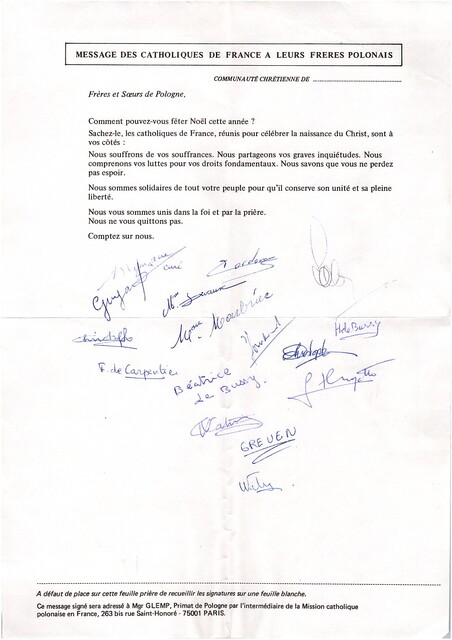 MESSAGE DES CATHOLIQUES DE FRANCE A LEURS FRERES POLONAIS
COMMUNAUTÉ CHRÉTIENNE DE
Frères et Sœurs de Pologne,
Comment pouvez-vous fêter Noël cette année ?
Sachez-le, les catholiques de France, réunis pour célébrer la naissance du Christ, sont à
vos côtés :
Nous souffrons de vos souffrances. Nous partageons vos graves inquiétudes. Nous
comprenons vos luttes pour vos droits fondamentaux. Nous savons que vous ne perdez
pas espoir.
Nous sommes solidaires de tout votre peuple pour qu'il conserve son unité et sa pleine
liberté.
Nous vous sommes unis dans la foi et par la prière.
Nous ne vous quittons pas.
Comptez sur nous.
curé
Mme
Mme
H de Bussy
Christophe
F. de Carpentier
Béatrice
de Bussy.
GREVEN
Willy
A défaut de place sur cette feuille prière de recueillir les signatures sur une feuille blanche.
Ce message signé sera adressé à Mgr GLEMP, Primat de Pologne par l'intermédiaire de la Mission catholique
polonaise en France, 263 bis rue Saint-Honoré - 75001 PARIS.